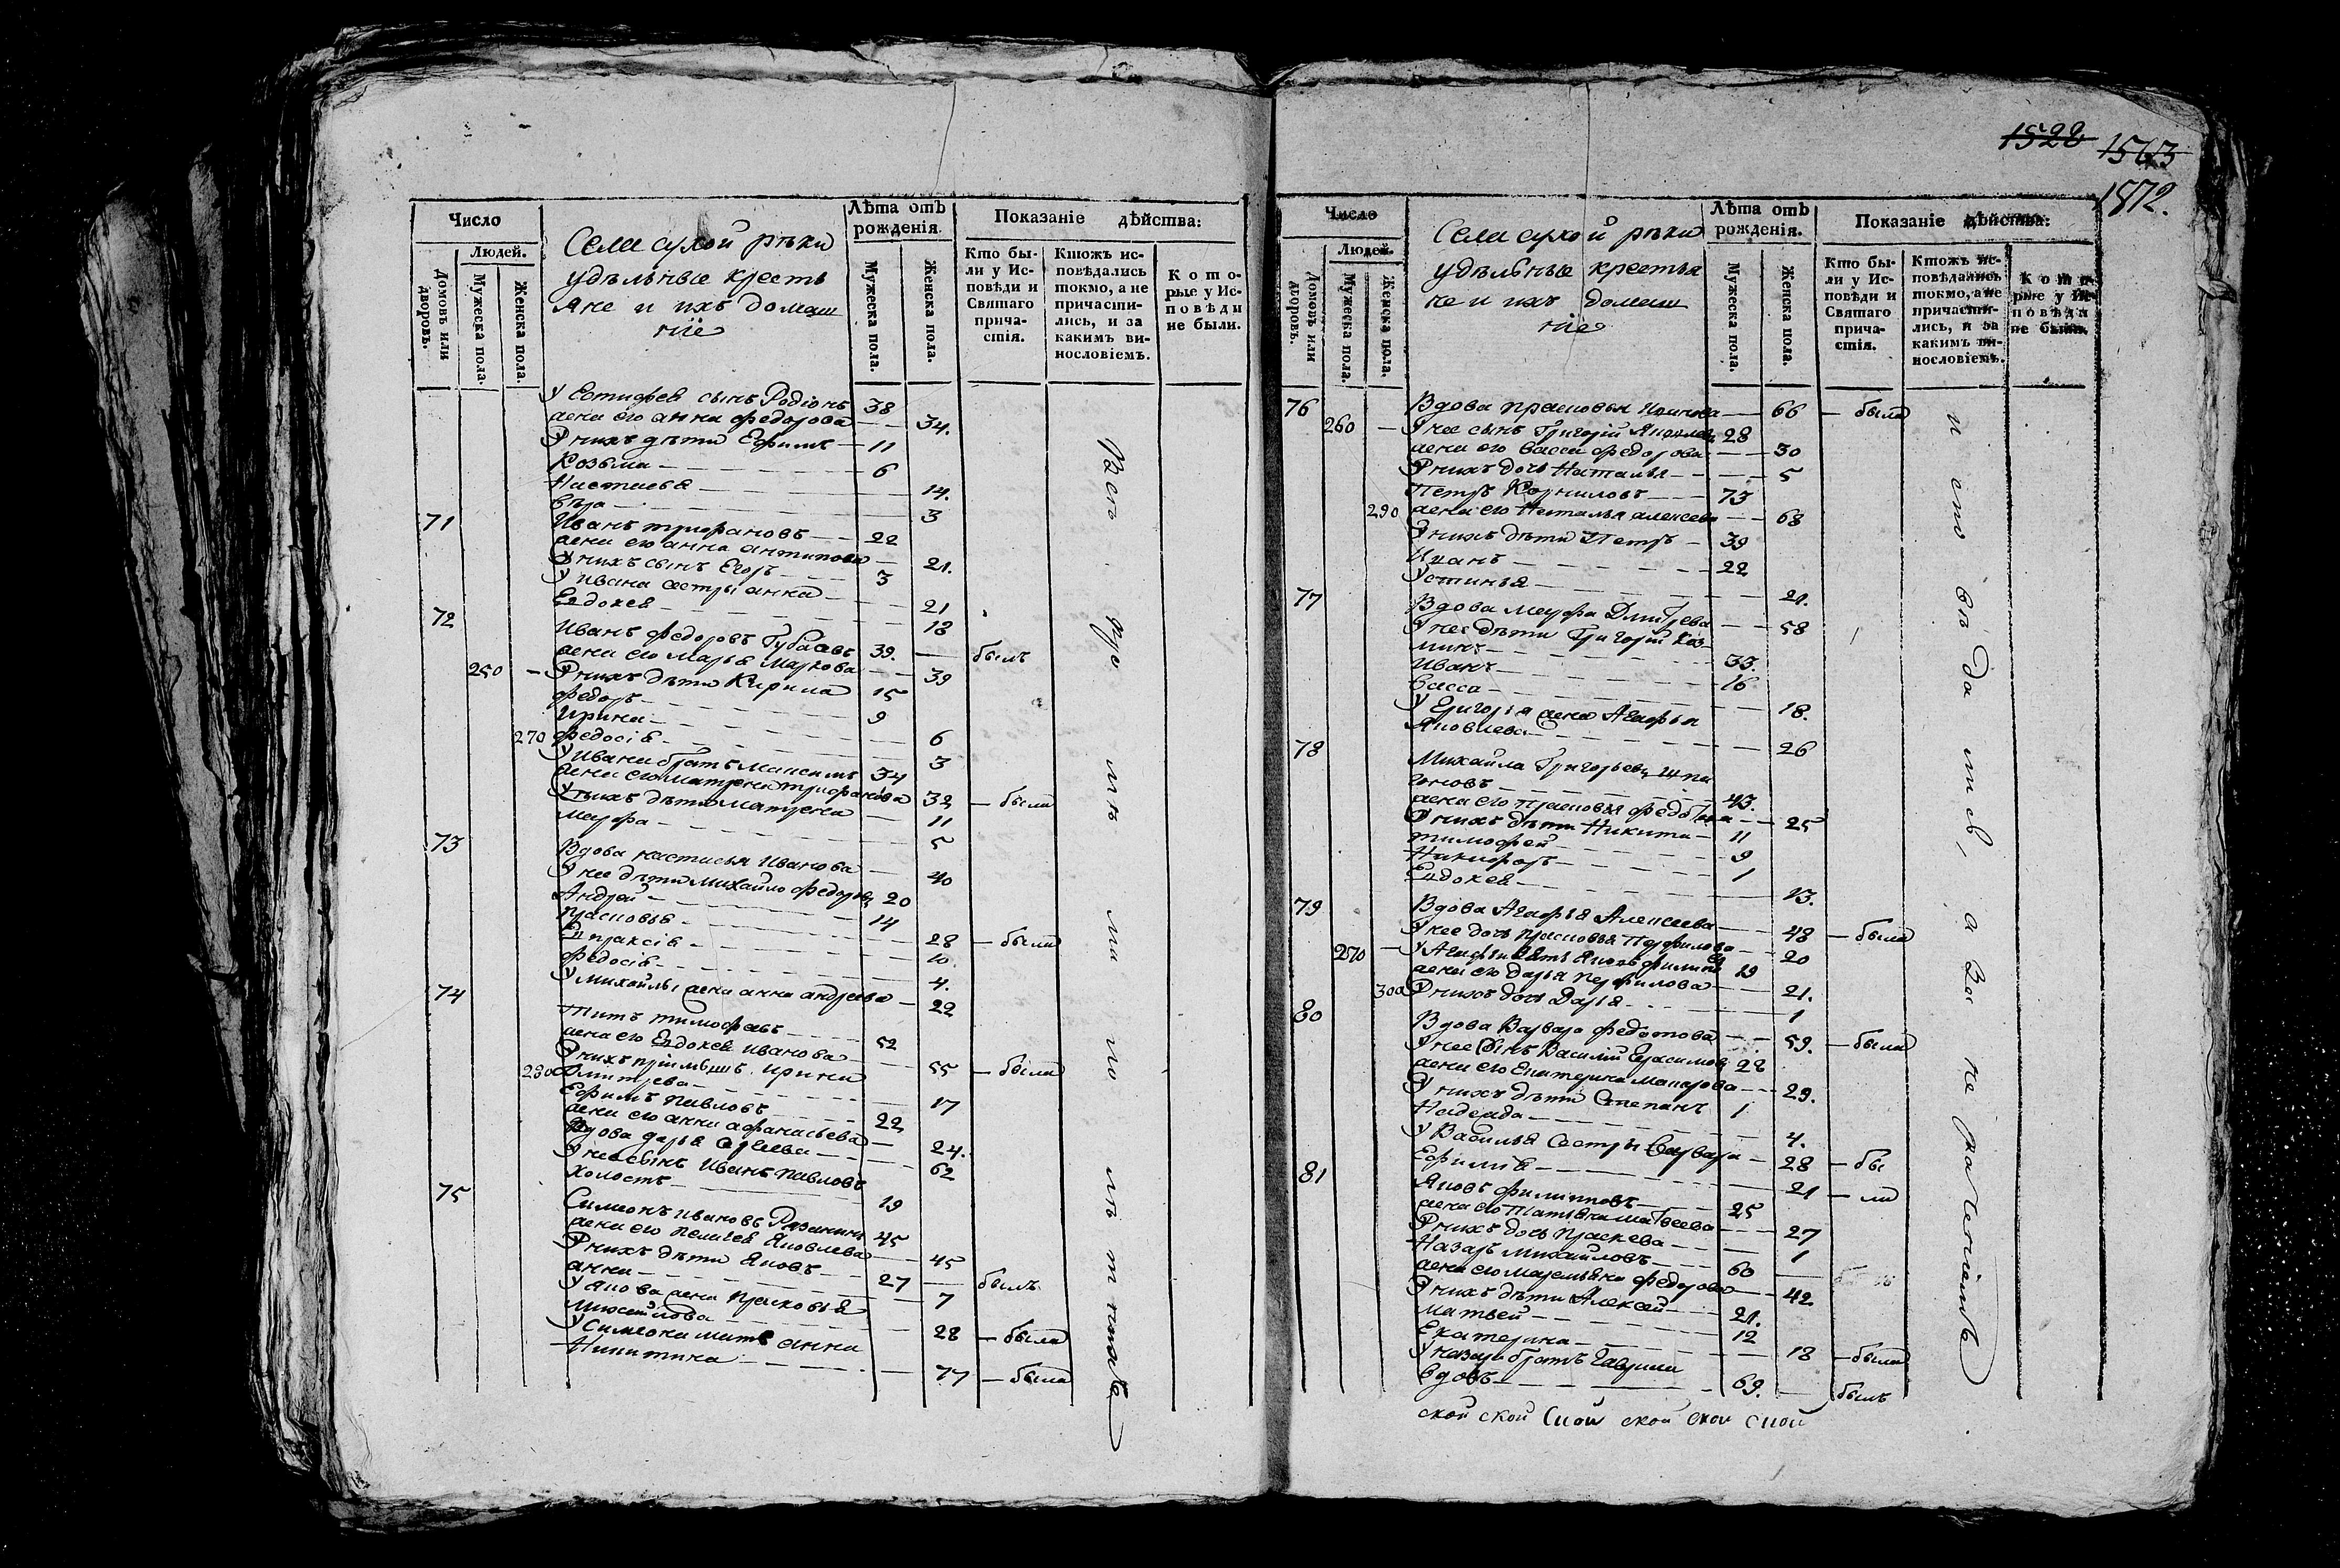 1528 1563
1872.
Число
Людей.
Домовъ или дворовъ.
Мужеска пола.
Женска пола.
Села сухой рѣки
удѣльные кресть
яне и ихъ домаш
ніе
Лѣта отъ рожденія.
Мужеска пола.
Женска пола.
Показаніе дѣйства:
Кто бы-
ли у Ис-
повѣди и
Святаго
прича-
стія.
Ктожъ ис-
повѣдались
токмо, а не
причасти-
лись, и за
какимъ ви-
нословіемъ.
Кото-
рые у Ис-
повѣди
не были.
У Естифея сынъ Родіонъ 38
жена его анна федорова 34.
У нихъ дѣти Ефимъ 11
Козьма 6
Настасья 14.
Вѣра 3
71 Иванъ трифановъ 22
жена его анна антипова 21.
У нихъ сынъ Егоръ 3
У ивана сестры анна 21
Евдокея 18
72 Иванъ федоровъ 39. былъ
жена его Марья Маркова 39
250 У нихъ дѣти Кирила 15
федоръ 9
Ирина 6
270 федосія 3
У Ивана братъ Максимъ 34
жена его матрена трифанова 32 были
У нихъ дѣти матрена 11
Мауфа 5
73 Вдова настасья Иванова 40
У нее дѣти михайло федоровъ 20
Андрей 14
Прасковья 28 были
Епраксія 10
федосія 4.
У михайлы жена анна андреева 22
74 Титъ тимофеевъ 52
жена его Евдокея иванова 55 были
У нихъ ирина
280 дмитрева 17
Ефимъ павловъ 22
жена его анна афанасьева 24.
Вдова дарья 62
У нее сынъ Иванъ павловъ
холостъ 19
75 Симеонъ ивановъ 45
жена его пелагея Яковлева 45
У нихъ дѣти Яковъ 27 былъ
анна 7
У якова жена прасковья
михайлова 28 были
У симеона мать анна
Никитина 77 была
Всѣ
Число
Людей.
Домовъ или дворовъ.
Мужеска пола.
Женска пола.
Села сухой рѣки
удѣльные крестья
не и ихъ домаш
ніе
Лѣта отъ рожденія.
Мужеска пола.
Женска пола.
Показаніе дѣйства:
Кто бы-
ли у Ис-
повѣди и
Святаго
прича-
стія.
Ктожъ ис-
повѣдались
токмо, а не
причасти-
лись, и за
какимъ ви-
нословіемъ.
Кото-
рые у Ис-
повѣди
не были.
76 Вдова прасковья 66 была
260 У нее сынъ Григорій Яковлевъ 28
жена его Васса федорова 30
У нихъ дочь Наталья 5
Петръ Корниловъ 73
290 жена его Наталья алексева 68
У нихъ дѣти Петръ 39
Иванъ 22
Устинья 21.
77 Вдова мауфа Дмитрева 58
У нее дѣти Григорій Коз
минъ 33.
Иванъ 16
Васса 18.
У Григорья жена Агафья
Яковлева 26
78 Михайла Григорьевъ
43.
жена его прасковья 25
У нихъ дѣти Никита 11
тимофей 9
Никифоръ 1
Евдокея 13.
79 Вдова Агафья Алексеева 48 были
У нее дочь прасковья Перфилова 20
270 У Агафьи зять Яковъ 19
жена его дарья перфилова 21.
300 У нихъ дочь Дарья 1
80 Вдова Варвара федотова 59. были
У нее сынъ Василій Герасимовъ 22
жена его Екатерина макарова 29.
У нихъ дѣти Степанъ 1
Надежда 4.
У Василья сестры Варвара 28 бы
Ефимія 21 ли
81 Яковъ филипповъ 25
жена его Татьяна матвеева 27
У нихъ дочь праскева 1
Назаръ михайловъ 60
жена его маремьяна федорова 42
У нихъ дѣти Алексей 21.
матвей 12
Екатерина 18 были
У назара братъ Гаврила
вдовъ 69. былъ
а все не раченіемъ
ской ской ской ской ской ской